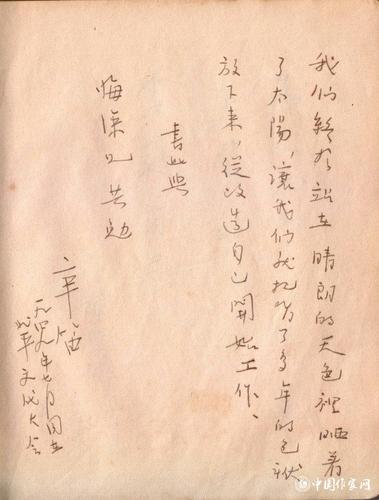 我们终於站在晴朗的天色裡晒着
了太陽，讓我们就把背了多年的包袱
放下来，從改造自己開始工作、
書此與
悔深兄共勉
辛笛
一九四九年七月同在
北平文代大会
中国作家网